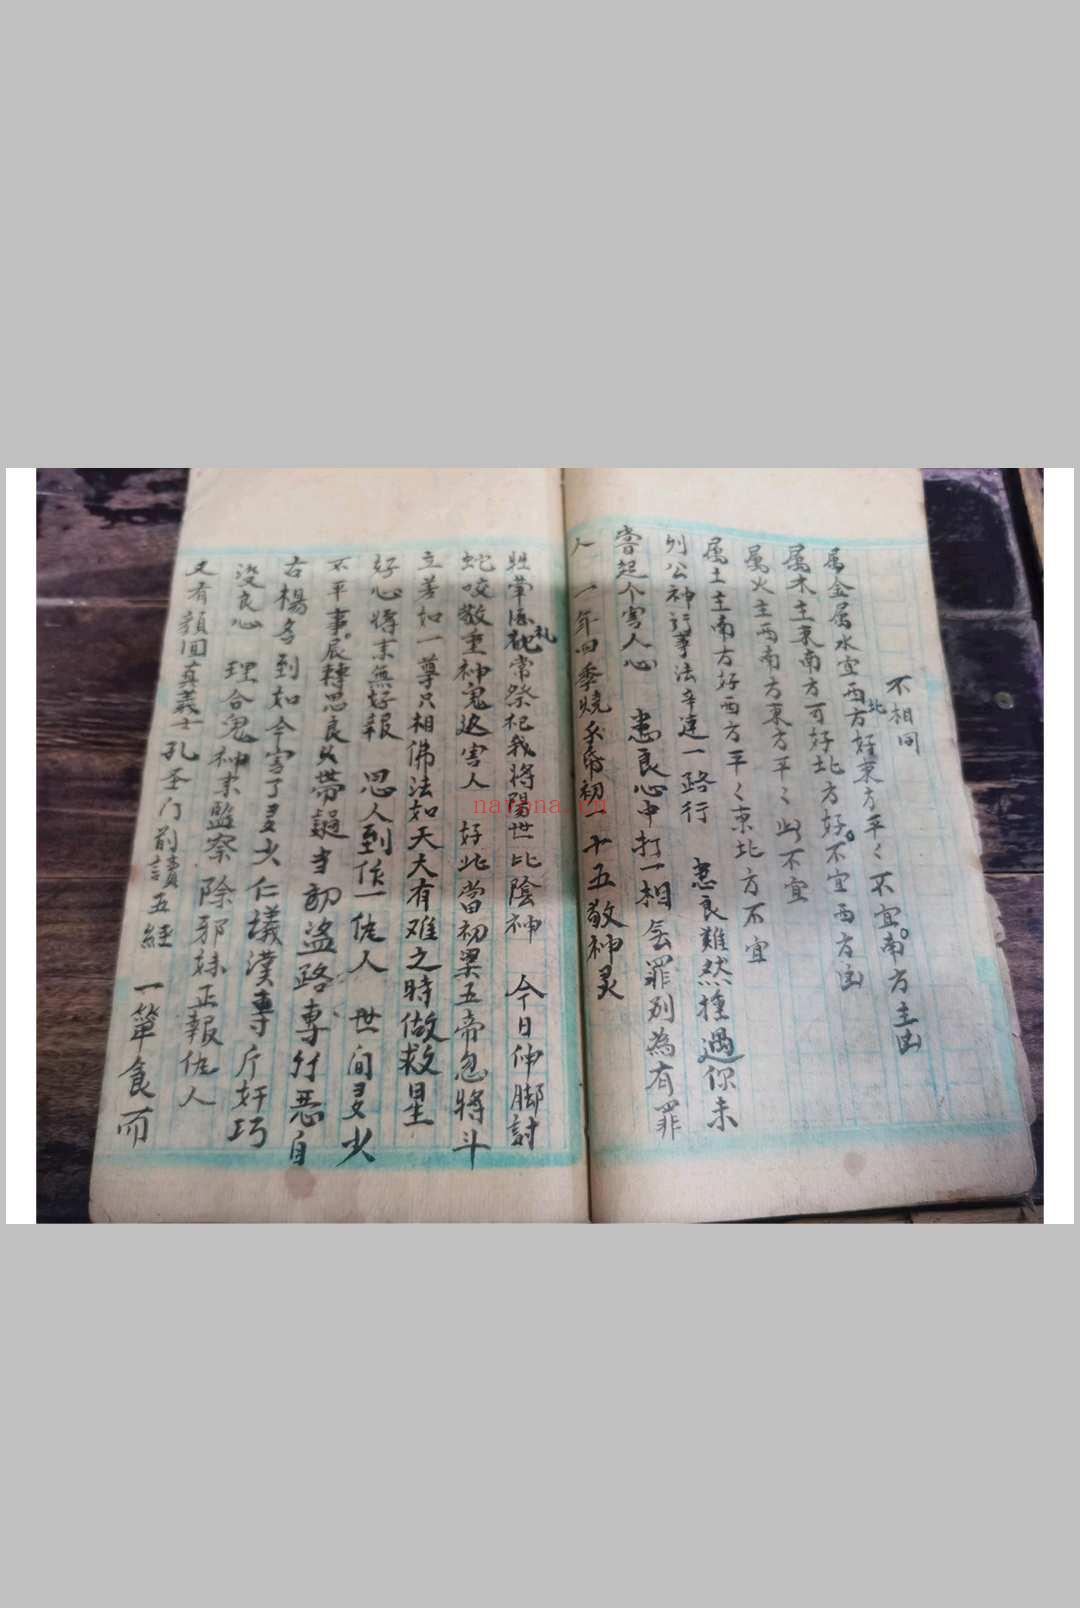 不相同
属金属水宜西北方好東方平々不宜。南方主凶
属木主東南方可好北方好。不宜西方凶
属火主西南方東方平々此不宜
属土主南方好西方平々東北方不宜
列公神行孝法辛達一路行 悲良難然撞遇你未
嘗起个害人心 悲良心中打一相無罪列為有罪
人 一年四季燒香初一十五敬神灵
觀礼常祭祀我將陽世比陰神 今日伸脚討
蛇咬敬重神鬼返害人 好比當初梁五帝忽將斗
立若如一尊只相佛法如天大有难之時做救星
好心將来無好報 思人到作一佐人 世间多少
不平事。展轉思良 當初盜路專行恶自
古楊名到如今害了多少仁義漢專斤奸巧
没良心 理合鬼神来監察除邪妹正報佐人
又有顏回真義士孔圣门前讀五經 一箪食而
navona.cn